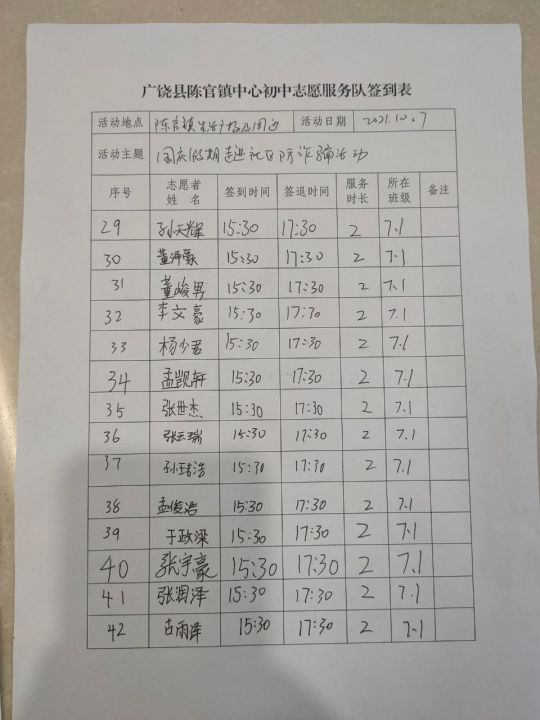 广饶县陈官镇中心初中志愿服务队签到表
活动地点 陈官镇生活广场及周边 活动日期 2021.10.7
活动主题 国庆假期走进社区防诈骗活动
序号 志愿者姓名 签到时间 签退时间 服务时长 所在班级 备注
29 孙天耀 15:30 17:30 2 7.1
30 董泽豪 15:30 17:30 2 7.1
31 董峻男 15:30 17:30 2 7.1
32 李文豪 15:30 17:30 2 7.1
33 杨少君 15:30 17:30 2 7.1
34 孟凯轩 15:30 17:30 2 7.1
35 张世杰 15:30 17:30 2 7.1
36 张云瑞 15:30 17:30 2 7.1
37 孙 浩 15:30 17:30 2 7.1
38 孟俊浩 15:30 17:30 2 7.1
39 于政深 15:30 17:30 2 7.1
40 张宇豪 15:30 17:30 2 7.1
41 张润泽 15:30 17:30 2 7.1
42 古雨泽 15:30 17:30 2 7.1